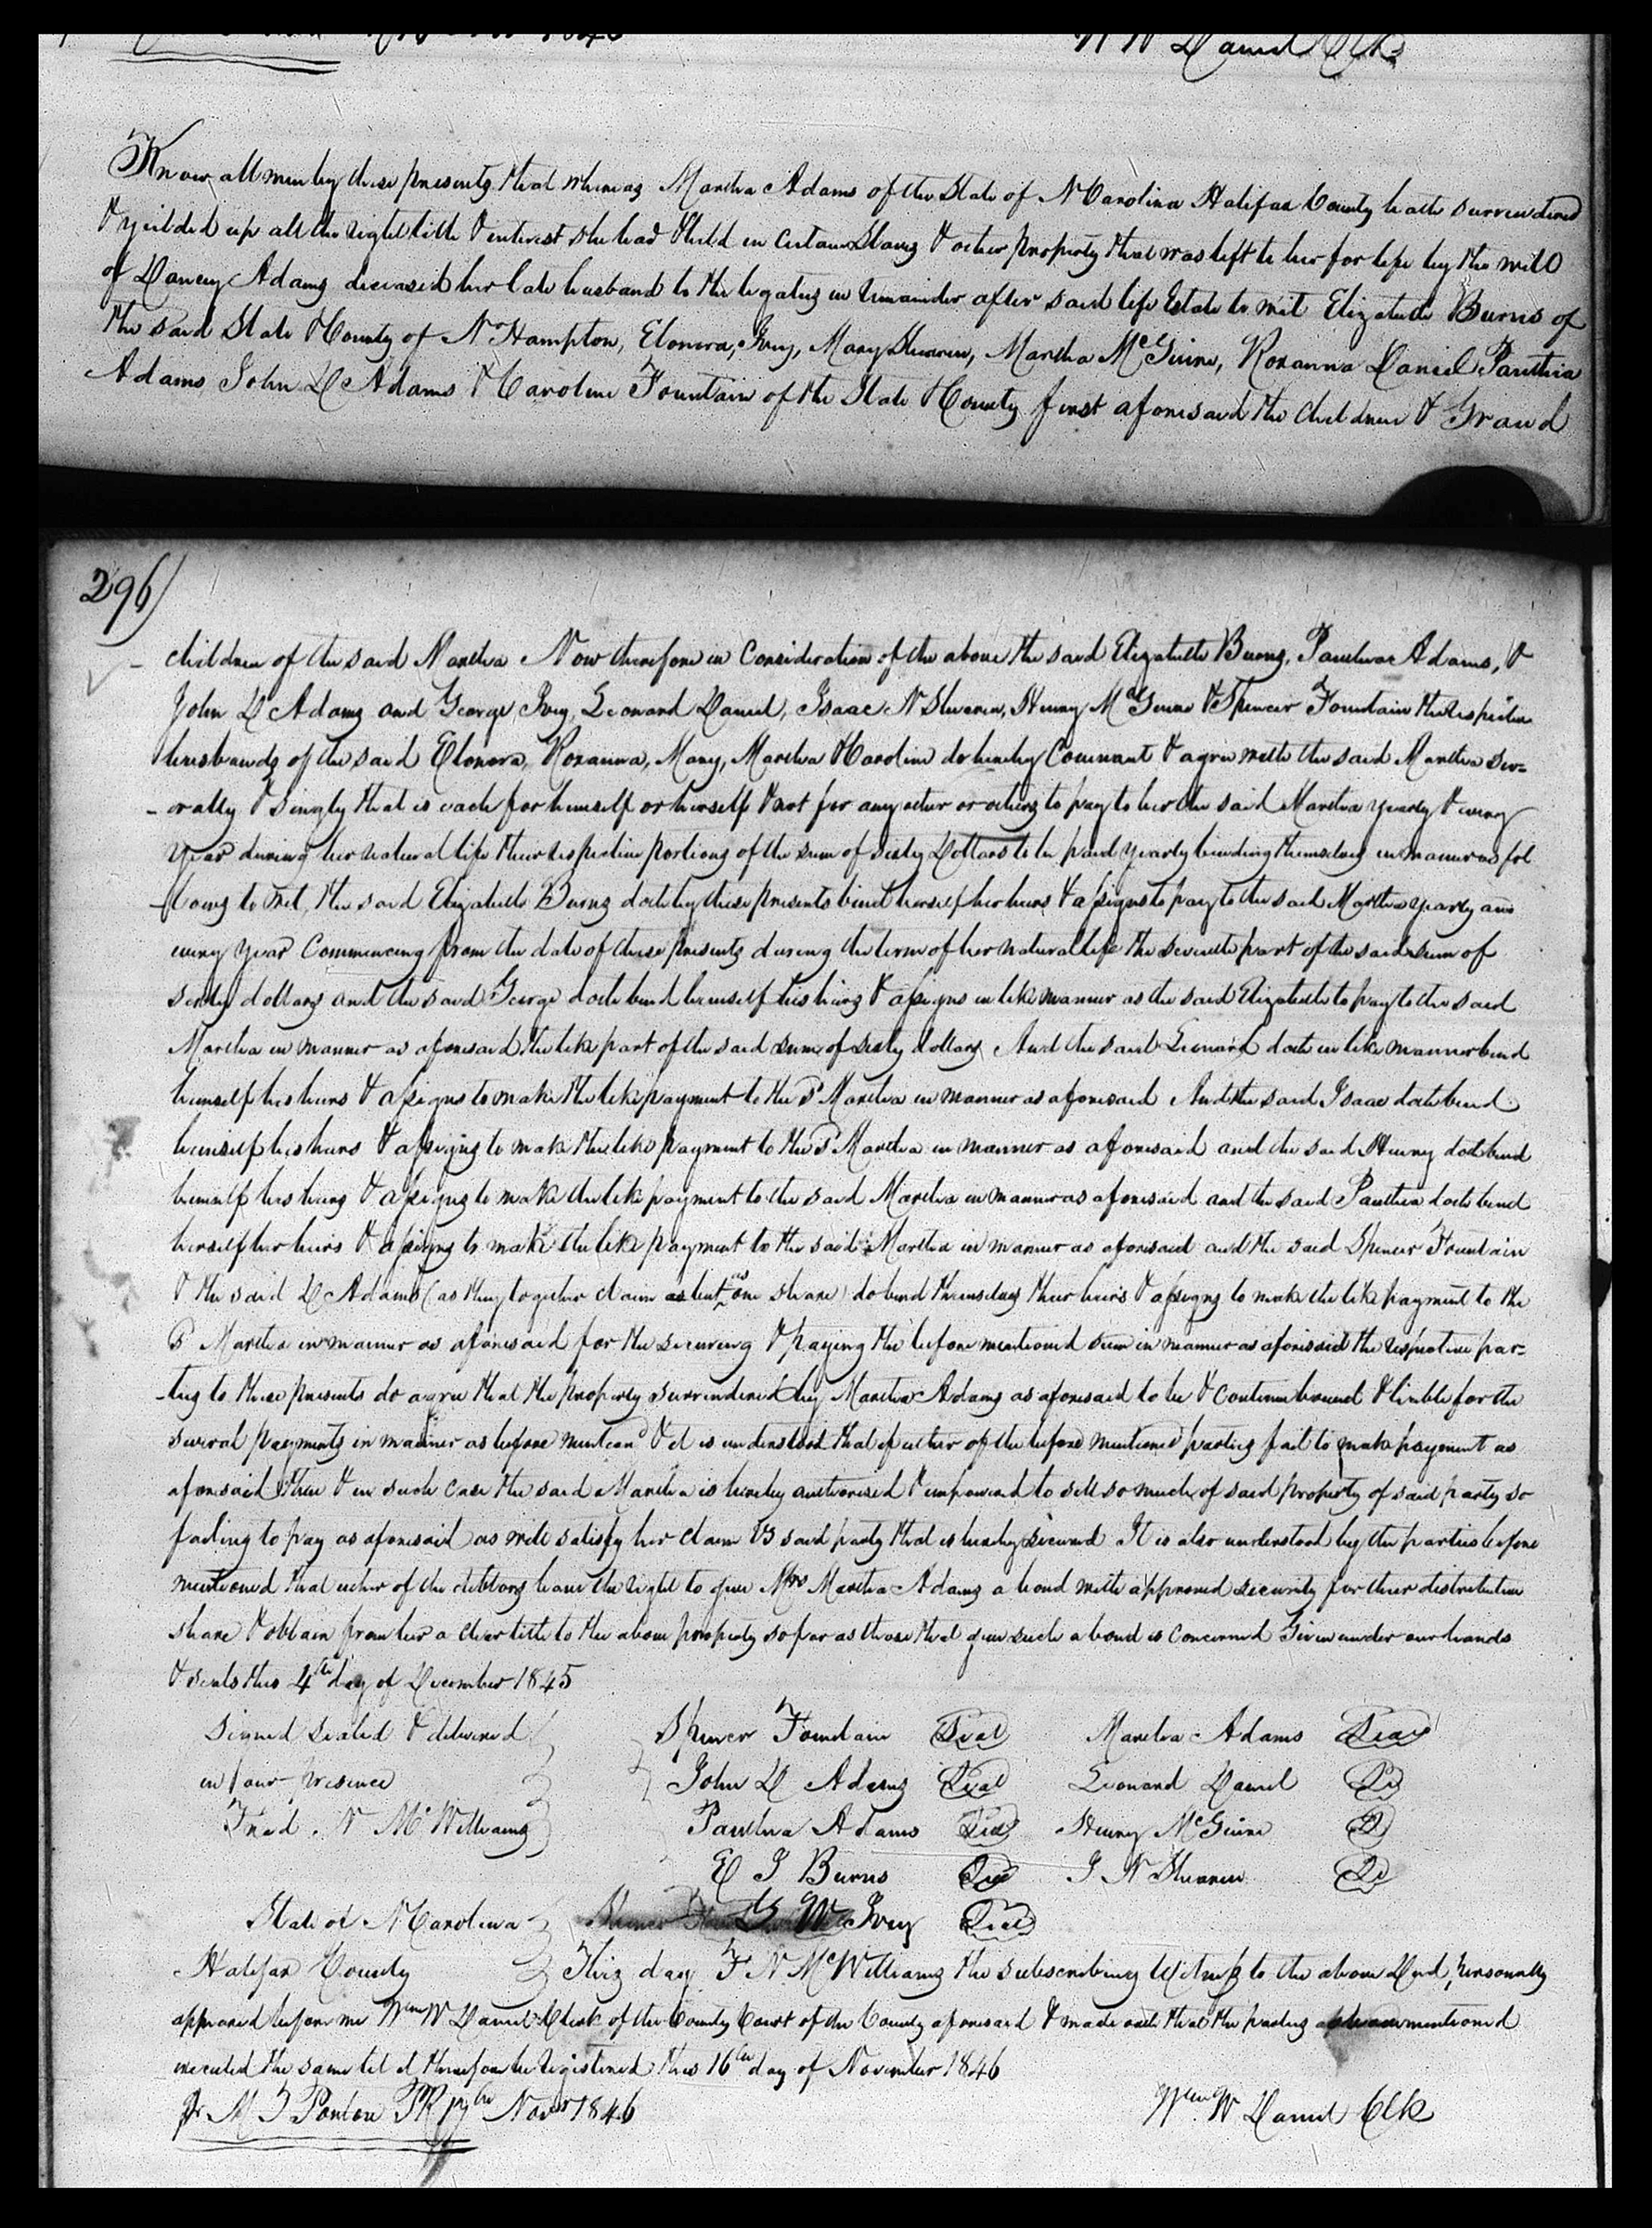 W W Daniel Clk
Know all men by these presents that whereas Martha Adams of the State of N Carolina Halifax County hath surrendered
& yeilded up all the right title & interest she had & held in certain Slaves & other property that was left to her for life by the will
of Dancey Adams deceased her late husband to the legatees in remainder after said life Estate to wit Elizabeth Burns of
the said State & County of No Hampton, Elonora, Ivey, Mary Shearin, Martha McGuire, Roxanna Daniel Panthia
Adams John D Adams & Caroline Fountain of the State & County first aforesaid the children & Grand
296)
children of the said Martha Now therefore in Consideration of the above the said Elizabeth Burns, Panthia Adams, &
John D Adams and George, Ivey, Leonard Daniel, Isaac N Shearin, Henry McGuire & Spencer Fountain the respective
husbands of the said Elonora, Roxanna, Mary, Martha & Caroline do hereby Covenant & agree with the said Martha sev=
-erally & singly that is each for himself or herself & not for any other or others to pay to her the said Martha yearly & every
year during her natural life their respective portions of the sum of sixty Dollars to be paid yearly binding themselves in manner as fol
-lows to wit, the said Elizabeth Burns doth by these presents bind herself her heirs & assigns to pay to the said Martha yearly and
every year Commencing from the date of these presents during the term of her natural life the seventh part of the said sum of
sixty dollars and the said George doth bind himself his heirs & assigns in like manner as the said Elizabeth to pay to the said
Martha in manner as aforesaid the like part of the said sum of sixty dollars And the said Leonard doth in like manner bind
himself his heirs & assigns to make the like payment to the Sd Martha in manner as aforesaid And the said Isaac doth bind
himself his heirs & assigns to make the like payment to the Sd Martha in manner as aforesaid and the said Henry doth bind
himself his heirs & assigns to make the like payment to the said Martha in manner as aforesaid and the said Panthia doth bind
herself her heirs & assigns to make the like payment to the said Martha in manner as aforesaid and the said Spencer Fountain
& the said D Adams (as they together claim but as one share) do bind themselves their heirs & assigns to make the like payment to the
Sd Martha in manner as aforesaid for the securing & paying the before mentioned sum in manner as aforesaid the respective par=
-ties to these presents do agree that the property surrendered by Martha Adams as aforesaid to be & continue bound & liable for the
several payments in manner as before mentiond & it is understood that if either of the before mentioned parties fail to make payment as
aforesaid then & in such case the said Martha is hereby authorised & empowered to sell so much of said property of said party so
failing to pay as aforesaid as will satisfy her claim vs said party that is hereby secured It is also understood by the parties before
mentioned that either of the debtors have the right to give Mrs Martha Adams a bond with approved security for their distributive
share & obtain from her a clear title to the above property so far as those that give such a bond is concerned Given under our hands
& seals this 4th day of December 1845
Signed sealed & delivered Spencer Fountain Seal Martha Adams Seal
in our presence John D Adams Seal Leonard Daniel
Fred. N McWilliams Panthia Adams Seal Henry McGuire
E J Burns Seal I N Shearin
State of N Carolina G W Ivey Seal
Halifax County This day F N McWilliams the subscribing witness to the above Deed, personally
appeared before me Wm W Daniel Clerk of the County Court of the County aforesaid & made oath that the parties mentioned
executed the same let it therefore be registered this 16th day of November 1846
Pr M T Ponton PR 17th Novr 1846 Wm W Daniel Clk